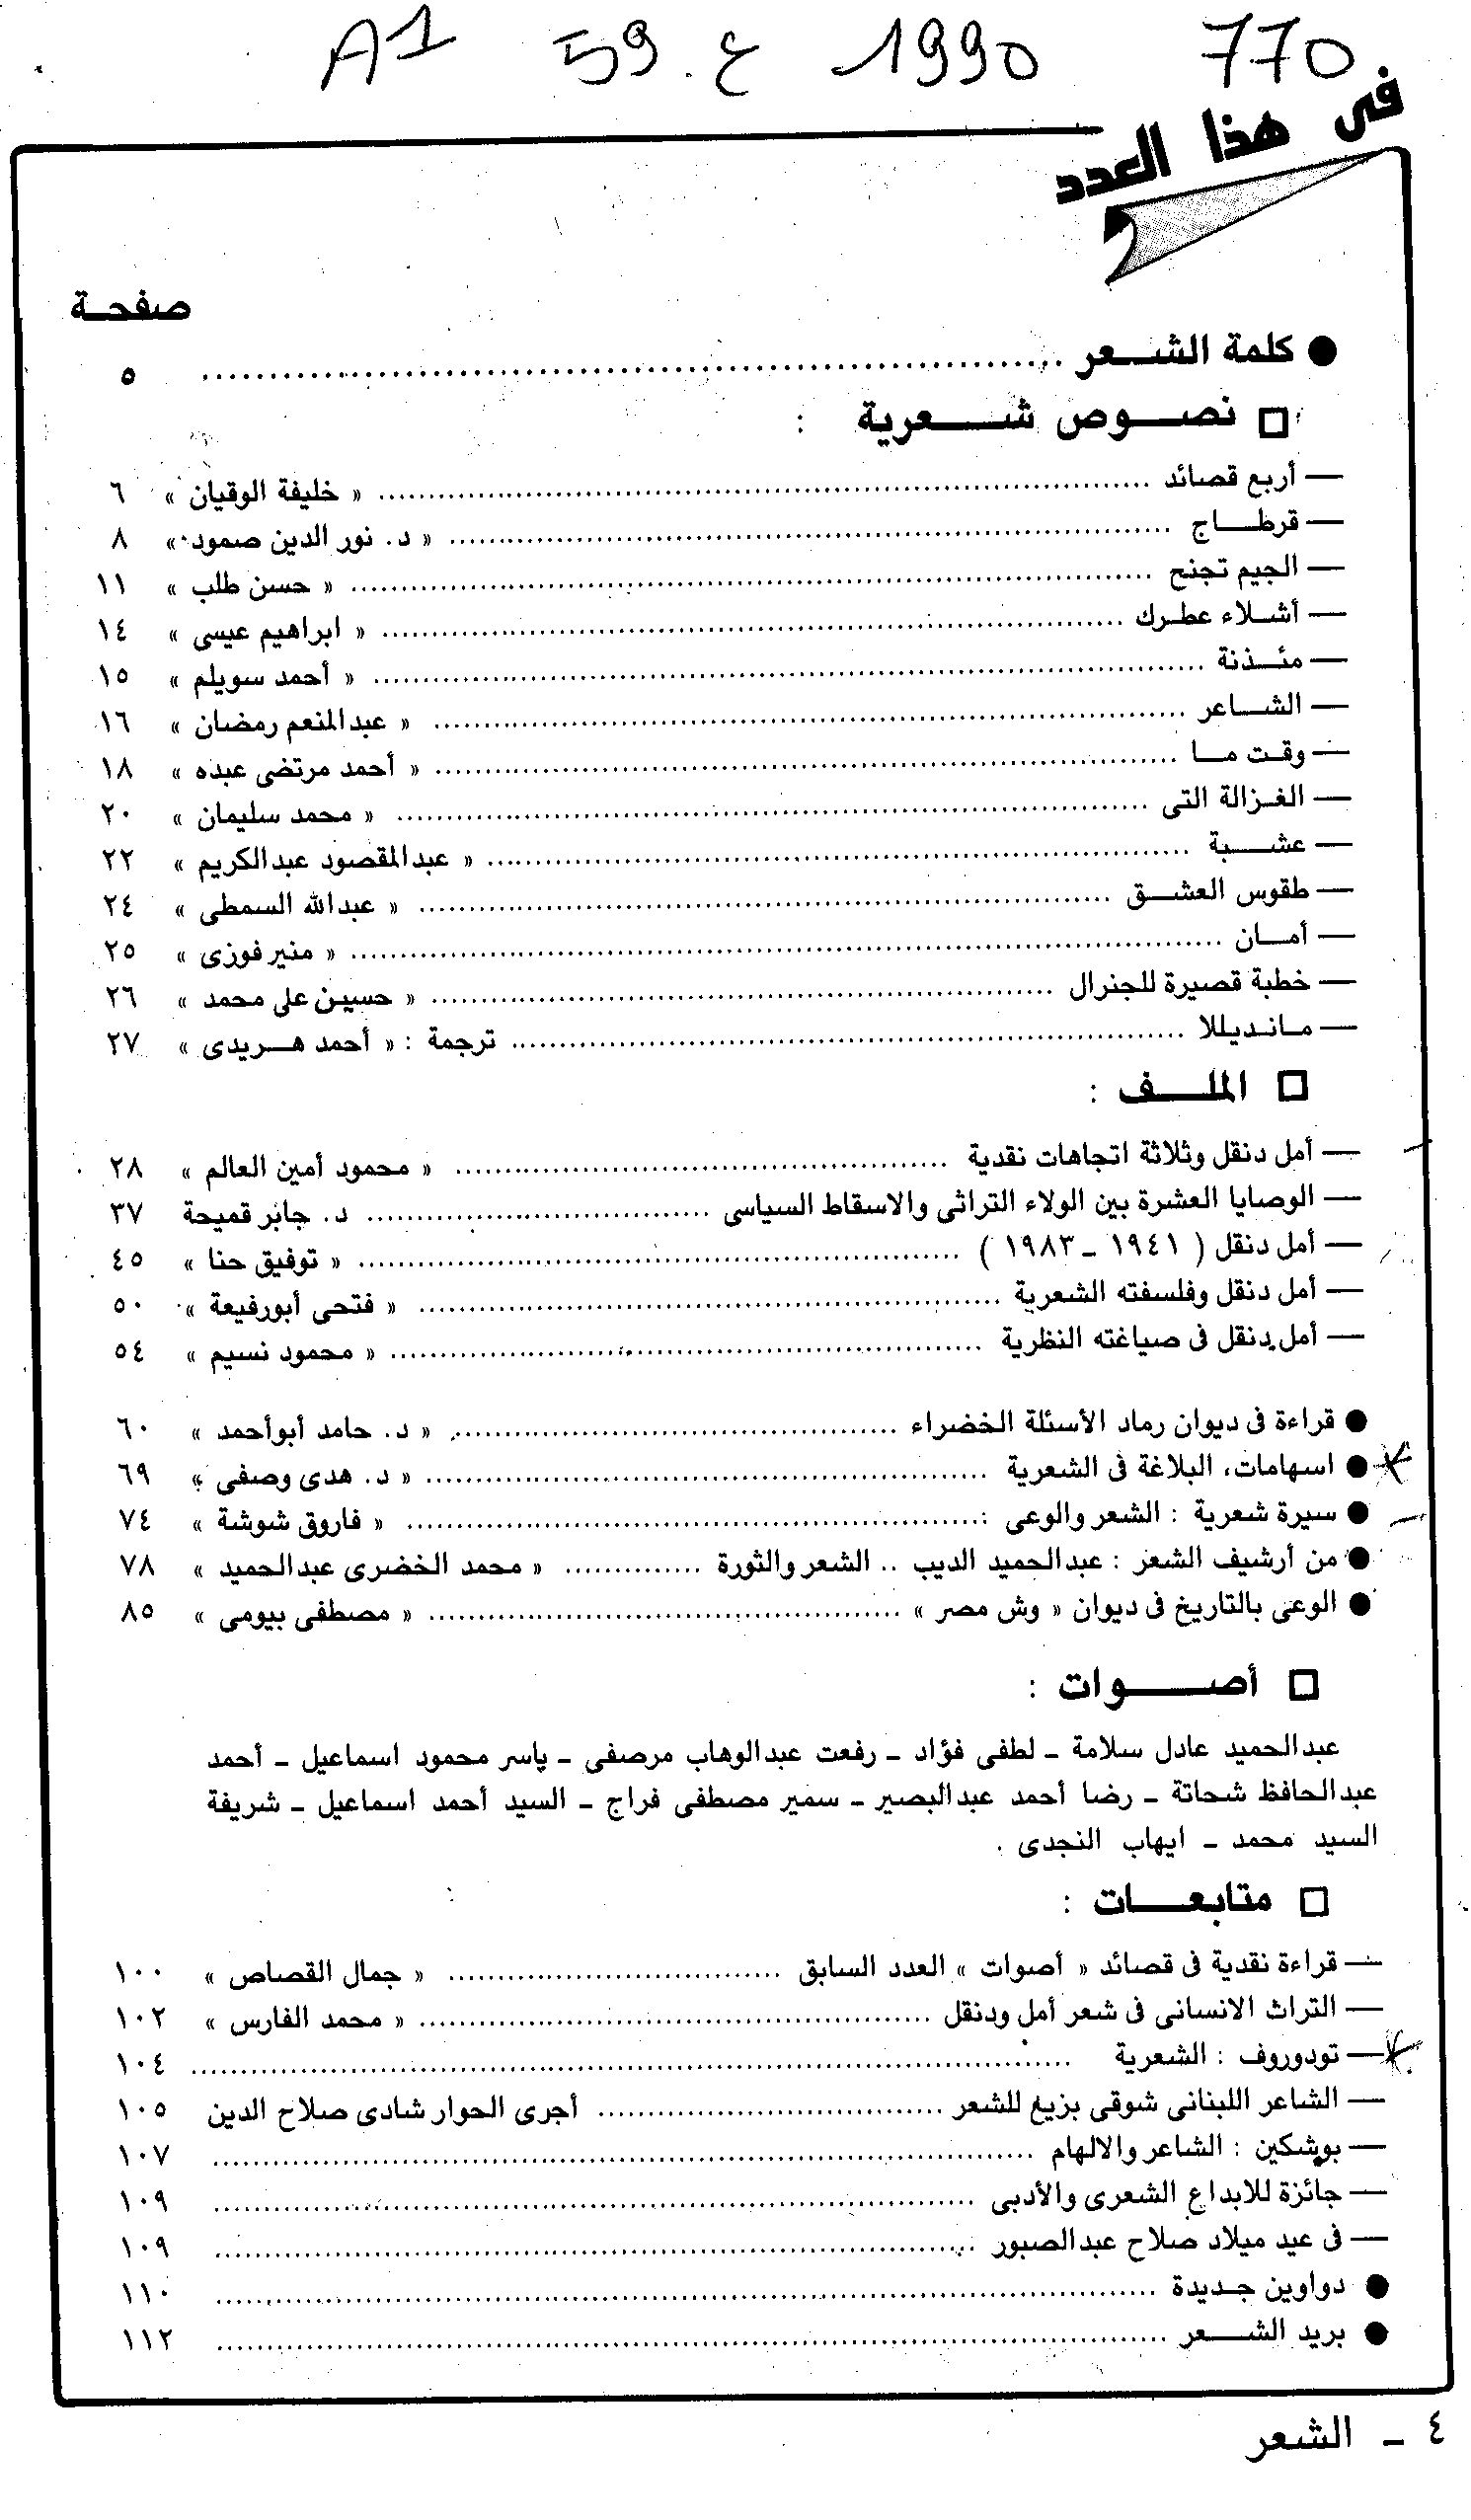 A1 59 ع 1990 770
فى هذا العدد
صفحـة
● كلمة الشـــعر .......... ٥
□ نصـــوص شـــعرية :
— أربع قصائد .......... « خليفة الوقيان » ٦
— قرطـــاج .......... « د. نور الدين صمود » ٨
— الجيم تجنح .......... « حسن طلب » ١١
— أشـلاء عطـرك .......... « ابراهيم عيسى » ١٤
— مئـــذنة .......... « أحمد سويلم » ١٥
— الشـــاعر .......... « عبدالمنعم رمضان » ١٦
— وقـت مـــا .......... « أحمد مرتضى عبده » ١٨
— الغـزالة التى .......... « محمد سليمان » ٢٠
— عشـــبة .......... « عبدالمقصود عبدالكريم » ٢٢
— طقوس العشـــق .......... « عبدالله السمطى » ٢٤
— أمـــان .......... « منير فوزى » ٢٥
— خطبة قصيرة للجنرال .......... « حسين على محمد » ٢٦
— مـانـديـلا .......... ترجمة : « أحمد هـــريدى » ٢٧
□ الملـــف :
— أمل دنقل وثلاثة اتجاهات نقدية .......... « محمود أمين العالم » ٢٨
— الوصايا العشرة بين الولاء التراثى والاسقاط السياسى .......... د. جابر قميحة ٣٧
— أمل دنقل ( ١٩٤١ ـ ١٩٨٣ ) .......... « توفيق حنا » ٤٥
— أمل دنقل وفلسفته الشعرية .......... « فتحى أبورفيعة » ٥٠
— أمل دنقل فى صياغته النظرية .......... « محمود نسيم » ٥٤
● قراءة فى ديوان رماد الأسئلة الخضراء .......... « د. حامد أبوأحمد » ٦٠
● اسهامات، البلاغة فى الشعرية .......... « د. هدى وصفى » ٦٩
● سيرة شعرية : الشعر والوعى : .......... « فاروق شوشة » ٧٤
● من أرشيف الشعر : عبدالحميد الديب .. الشعر والثورة .......... « محمد الخضرى عبدالحميد » ٧٨
● الوعى بالتاريخ فى ديوان « وش مصر » .......... « مصطفى بيومى » ٨٥
□ أصـــوات :
عبدالحميد عادل سلامة ـ لطفى فؤاد ـ رفعت عبدالوهاب مرصفى ـ ياسر محمود اسماعيل ـ أحمد
عبدالحافظ شحاتة ـ رضا أحمد عبدالبصير ـ سمير مصطفى فراج ـ السيد أحمد اسماعيل ـ شريفة
السيد محمد ـ ايهاب النجدى .
□ متابعـــات :
— قراءة نقدية فى قصائد « أصوات » العدد السابق .......... « جمال القصاص » ١٠٠
— التراث الانسانى فى شعر أمل ودنقل .......... « محمد الفارس » ١٠٢
— تودوروف : الشعرية .......... ١٠٤
— الشاعر اللبنانى شوقى بزيغ للشعر .......... أجرى الحوار شادى صلاح الدين ١٠٥
— بوشكين : الشاعر والالهام .......... ١٠٧
— جائزة للابداع الشعرى والأدبى .......... ١٠٩
— فى عيد ميلاد صلاح عبدالصبور .......... ١٠٩
● دواوين جـديدة .......... ١١٠
● بريد الشـــعر .......... ١١٢
٤ ـ الشعر